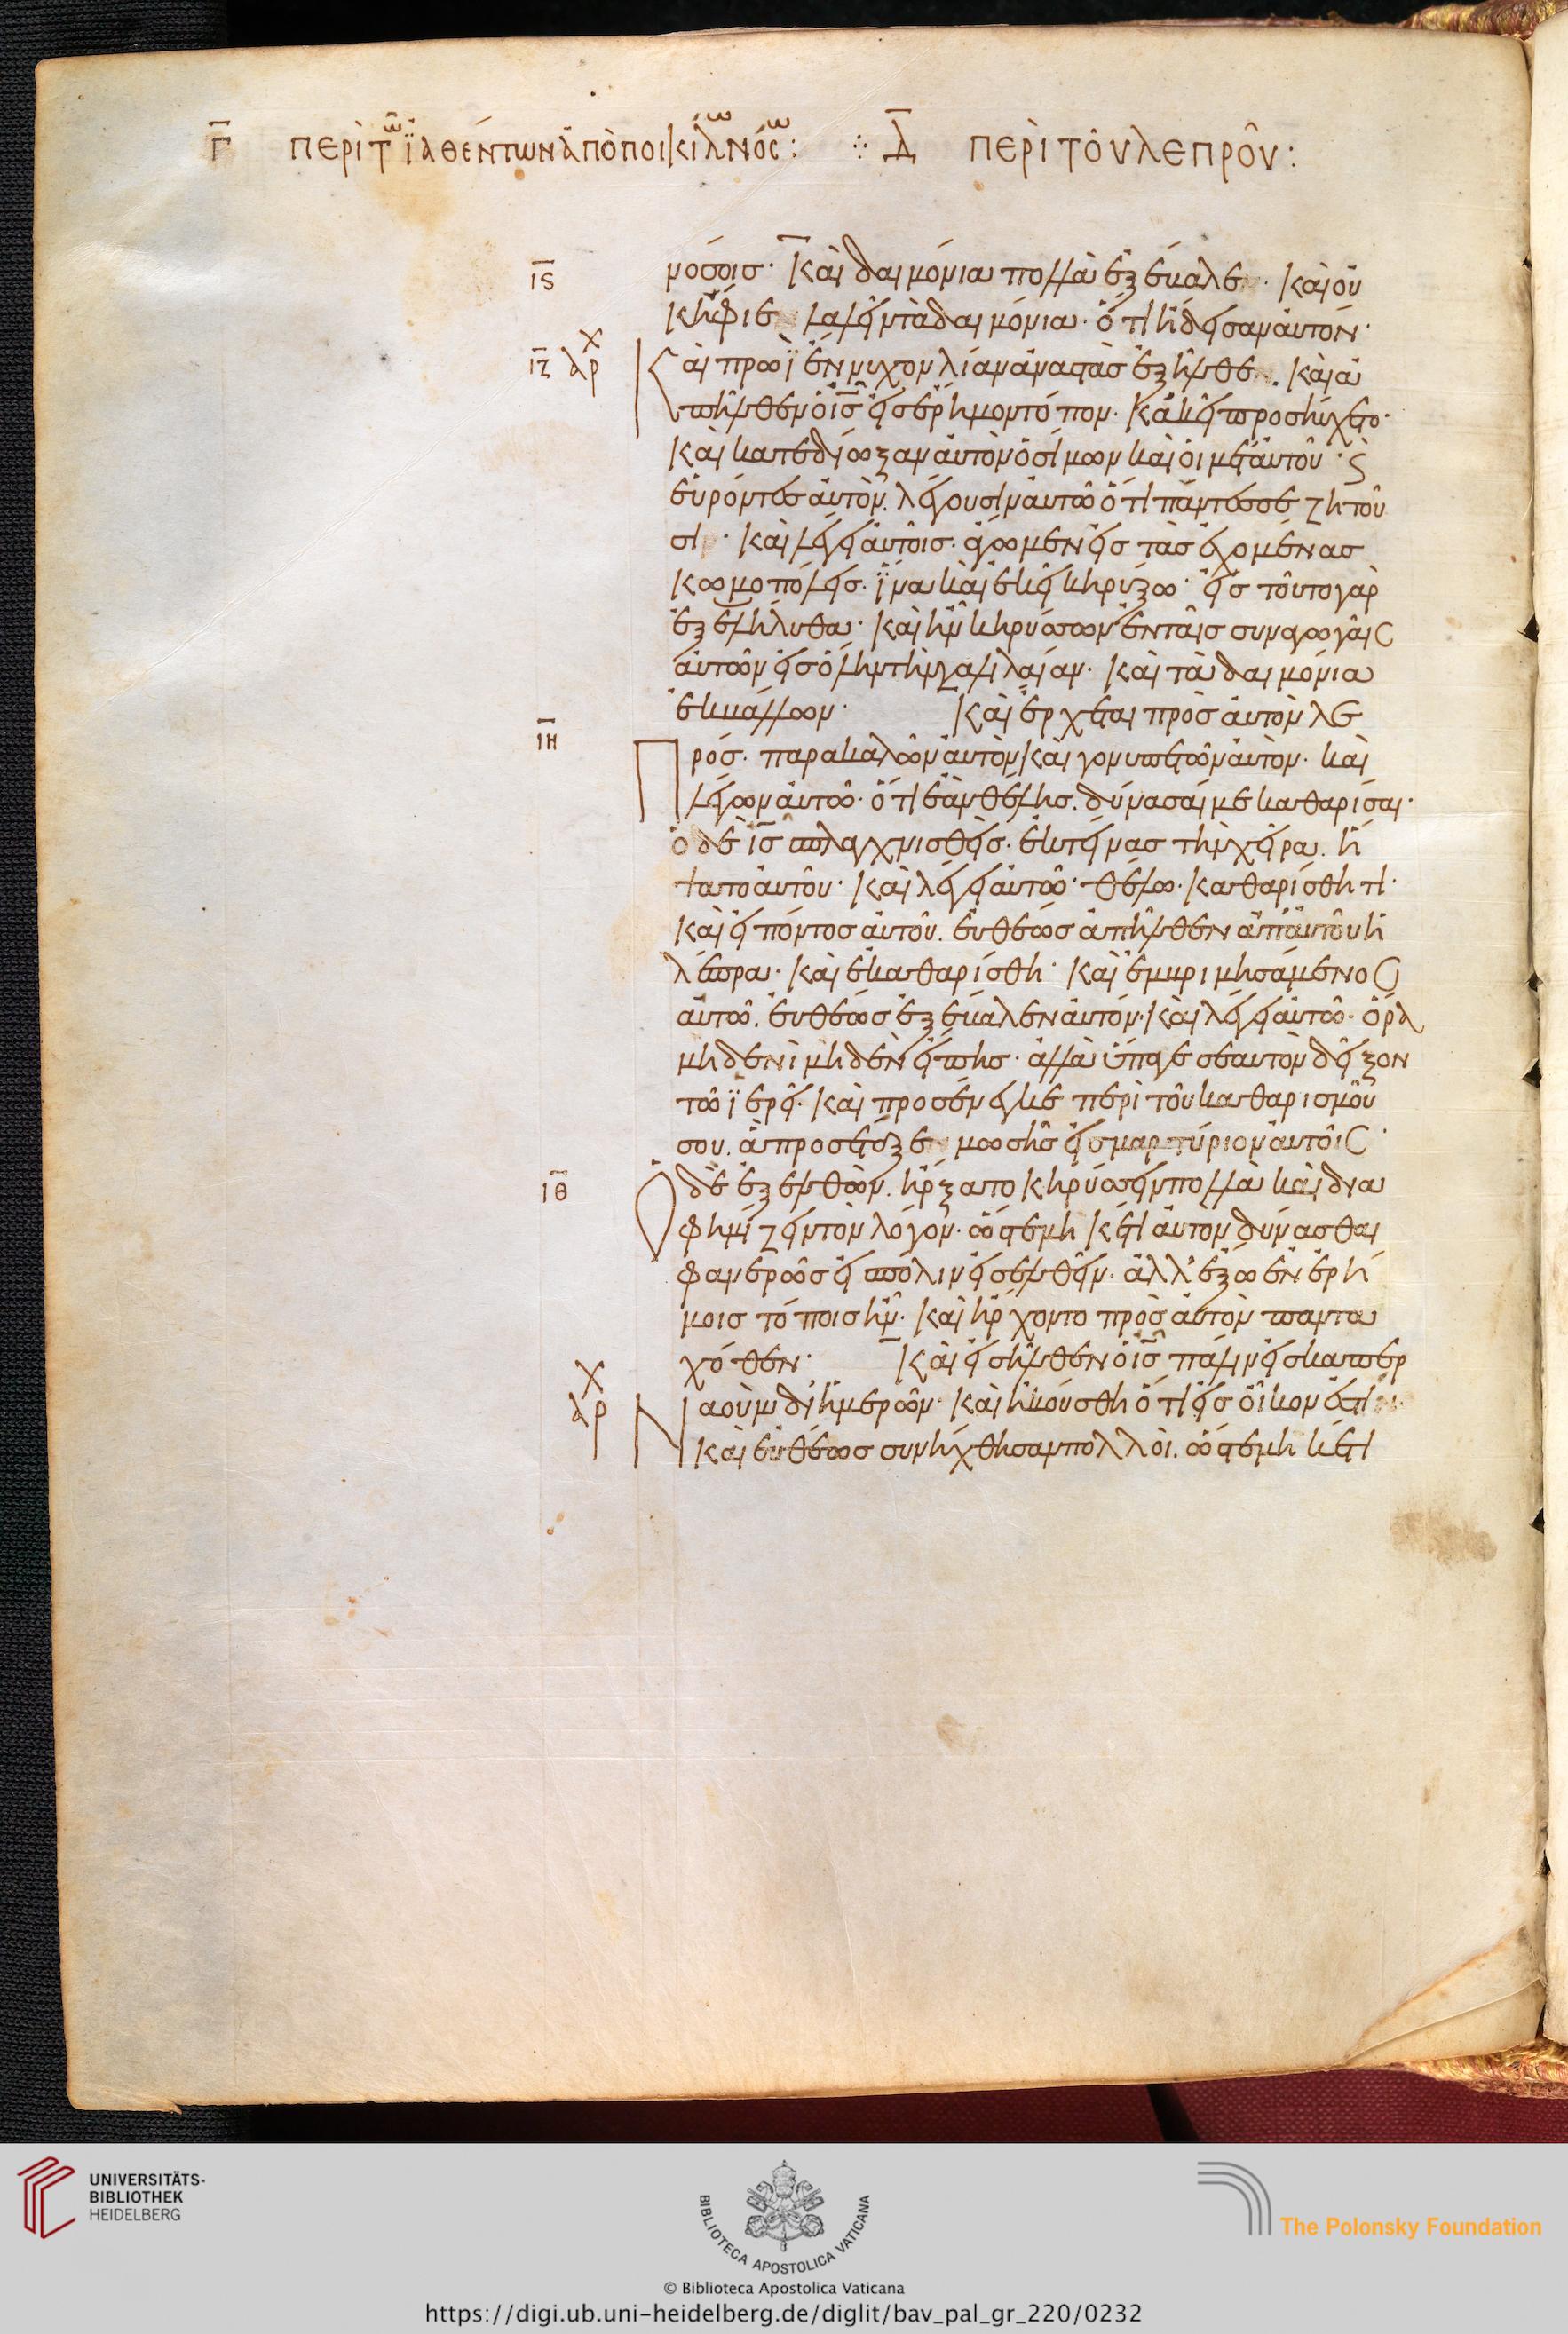 Γ̅ περὶ τῶ ϊαθέντων ἀπὸ ποικίλων νόσω: ⁘ Δ̅ περὶ τοῦ λεπροῦ:
ΙϚ νόσοις· Καὶ δαιμόνια πολλὰ ἐξέβαλε· καὶ οὐ
κ ἤφιε λαλεῖν τὰ δαιμόνια· ὅτι ἤδεισαν αὐτόν·
ΙΖ ἀρχ Καὶ πρωῒ ἔννυχον λίαν ἀναστὰς ἐξῆλθε. καὶ ἀ
πῆλθεν ὁ ις εἰς ἔρημον τόπον. κἀκεῖ προσηύχετο·
καὶ κατεδίωξαν αὐτὸν ὁ σίμων καὶ οἱ μετ' αὐτοῦ· ϛ
εὑρόντες αὐτὸν. λέγουσιν αὐτῶ ὅτι πάντες σε ζητοῦ
σι· καὶ λέγει αὐτοῖς· ἄγωμεν εἰς τὰς ἐχομένας
κωμοπόλεις. ἵνα καὶ ἐκεῖ κηρύξω· εἰς τοῦτο γὰρ
ἐξελήλυθα· καὶ ἦν κηρύσσων ἐν ταῖς συναγωγαῖς
αὐτῶν εἰς ὅλην τὴν γαλιλαίαν· καὶ τὰ δαιμόνια
ἐκβάλλων· Καὶ ἔρχεται πρὸς αὐτὸν λε
ΙΗ πρός· παρακαλῶν αὐτὸν καὶ γονυπετῶν αὐτὸν· καὶ
λέγων αὐτῶ· ὅτι ἐὰν θέλης. δύνασαί με καθαρίσαι·
ὁ δὲ ις σπλαγχνισθεὶς· ἐκτείνας τὴν χεῖρα. ἥ
ψατο αὐτοῦ· καὶ λέγει αὐτῶ· θέλω. καθαρίσθητι·
καὶ εἰπόντος αὐτοῦ. εὐθέως ἀπῆλθεν ἀπ' αὐτοῦ ἡ
λέπρα· καὶ ἐκαθαρίσθη· καὶ ἐμβριμησάμενος
αὐτῶ. εὐθέως ἐξέβαλεν αὐτόν· καὶ λέγει αὐτῶ· ὅρα
μηδενὶ μηδὲν εἴπης· ἀλλὰ ὕπαγε σεαυτὸν δεῖξον
τῶ ϊερεῖ· καὶ προσένεγκε περὶ τοῦ καθαρισμοῦ
σου. ἃ προσέταξε μωσῆς εἰς μαρτύριον αὐτοῖς·
ΙΘ Ὁ δὲ ἐξελθὼν. ἤρξατο κηρύσσειν πολλὰ καὶ δια
φημίζειν τὸν λόγον· ὥστε μὴ κέτι αὐτὸν δύνασθαι
φανερῶς εἰς πόλιν εἰσελθεῖν· ἀλλ' ἔξω ἐν ἐρή
μοις τόποις ἦν· καὶ ἤρχοντο πρὸς αὐτὸν παντα
χόθεν· Καὶ εἰσῆλθεν ὁ ις πάλιν εἰς καπερ
ἀρχ ναοὺμ δι' ἡμερῶν· καὶ ἠκούσθη ὅτι εἰς οἶκον ἐστι·
καὶ εὐθέως συνήχθησαν πολλοὶ. ὥστε μὴ κέτι
UNIVERSITÄTS-
BIBLIOTHEK
HEIDELBERG
BIBLIOTECA APOSTOLICA VATICANA
The Polonsky Foundation
© Biblioteca Apostolica Vaticana
https://digi.ub.uni-heidelberg.de/diglit/bav_pal_gr_220/0232